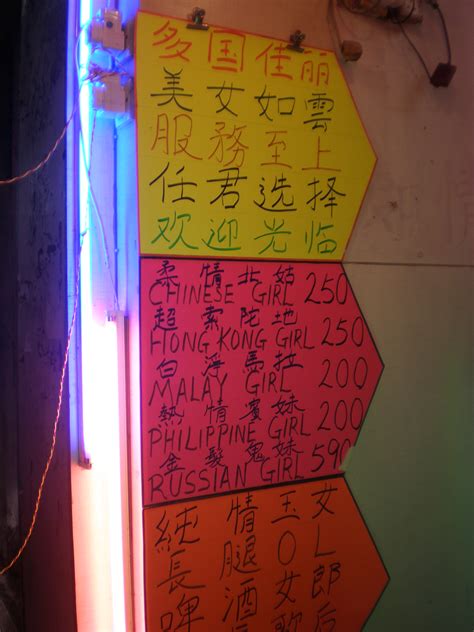 多国佳丽
美女如雲
服務至上
任君选择
欢迎光临
柔情北姑
CHINESE GIRL 250
超索陀地
HONG KONG GIRL 250
白淨馬拉
MALAY GIRL 200
熱情賓妹
PHILIPPINE GIRL 200
金髮鬼妹
RUSSIAN GIRL 590
純情玉女
長腿O L
啤酒女郎